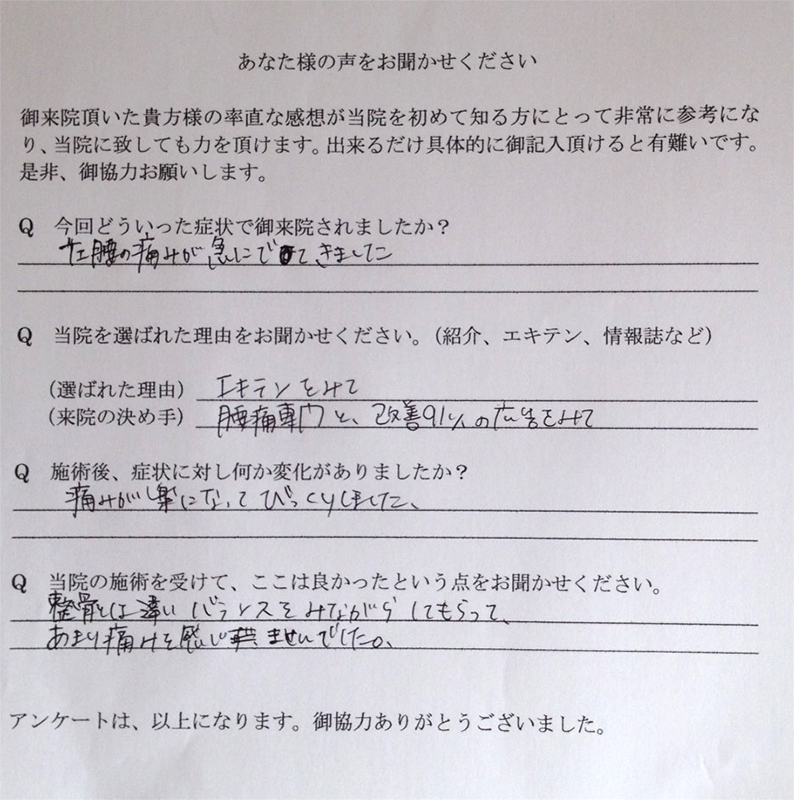 あなた様の声をお聞かせください
御来院頂いた貴方様の率直な感想が当院を初めて知る方にとって非常に参考にな
り、当院に致しても力を頂けます。出来るだけ具体的に御記入頂けると有難いです。
是非、御協力お願いします。
Q 今回どういった症状で御来院されましたか？
左腰の痛みが急にでてきました
Q 当院を選ばれた理由をお聞かせください。（紹介、エキテン、情報誌など）
（選ばれた理由） エキテンをみて
（来院の決め手） 腰痛専門と、改善91%の広告をみて
Q 施術後、症状に対し何か変化がありましたか？
痛みが楽になってびっくりしました、
Q 当院の施術を受けて、ここは良かったという点をお聞かせください。
整骨とは違いバランスをみながらしてもらって、
あまり痛みを感じませんでした。
アンケートは、以上になります。御協力ありがとうございました。